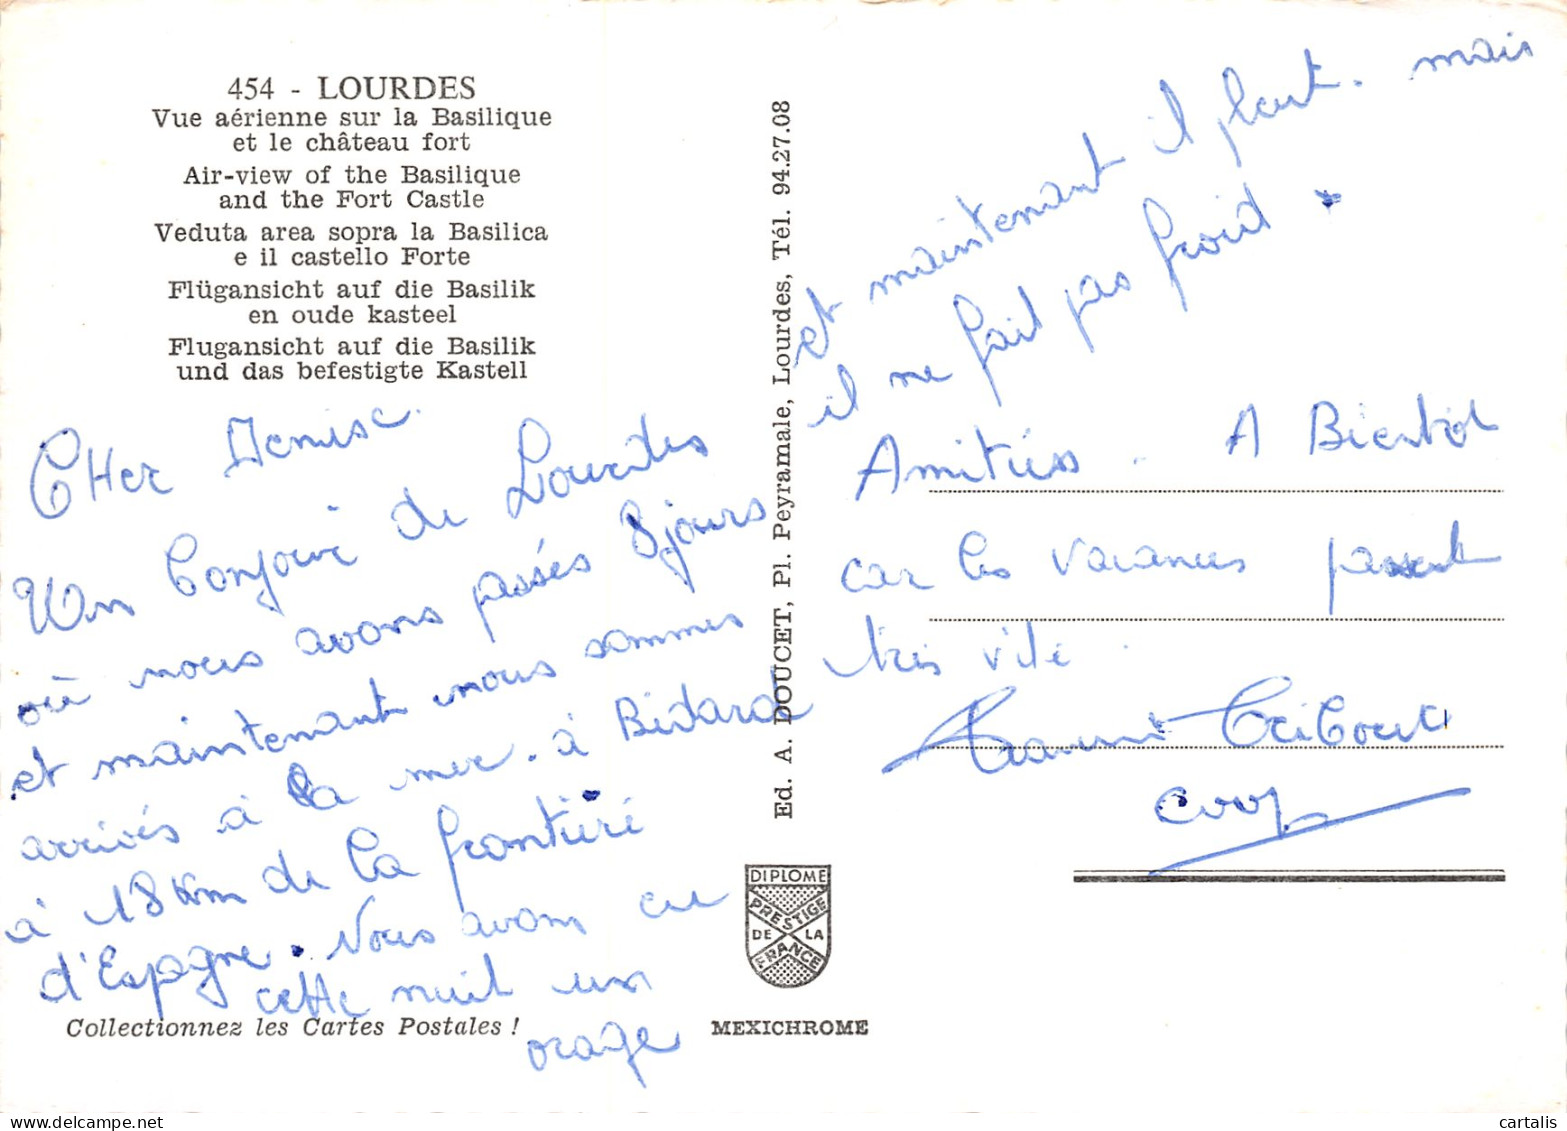 454 - LOURDES
Vue aérienne sur la Basilique
et le château fort
Air-view of the Basilique
and the Fort Castle
Veduta area sopra la Basilica
e il castello Forte
Flügansicht auf die Basilik
en oude kasteel
Flugansicht auf die Basilik
und das befestigte Kastell
CHer Denise
Un bonjour de Lourdes
où nous avons passés 8 jours
et maintenant nous sommes
arrivés à la mer. à Bidard
à 18 Km de la frontière
d'Espagne. Nous avons eu
cette nuit un
orage
Collectionnez les Cartes Postales !
Ed. A. DOUCET, Pl. Peyramale, Lourdes, Tél. 94.27.08
DIPLOME
PRESTIGE
DE LA
FRANCE
MEXICHROME
et maintenant il pleut. mais
il ne fait pas froid.
Amitiés. A Bientôt
car les vacances passent
très vite.
cartalis